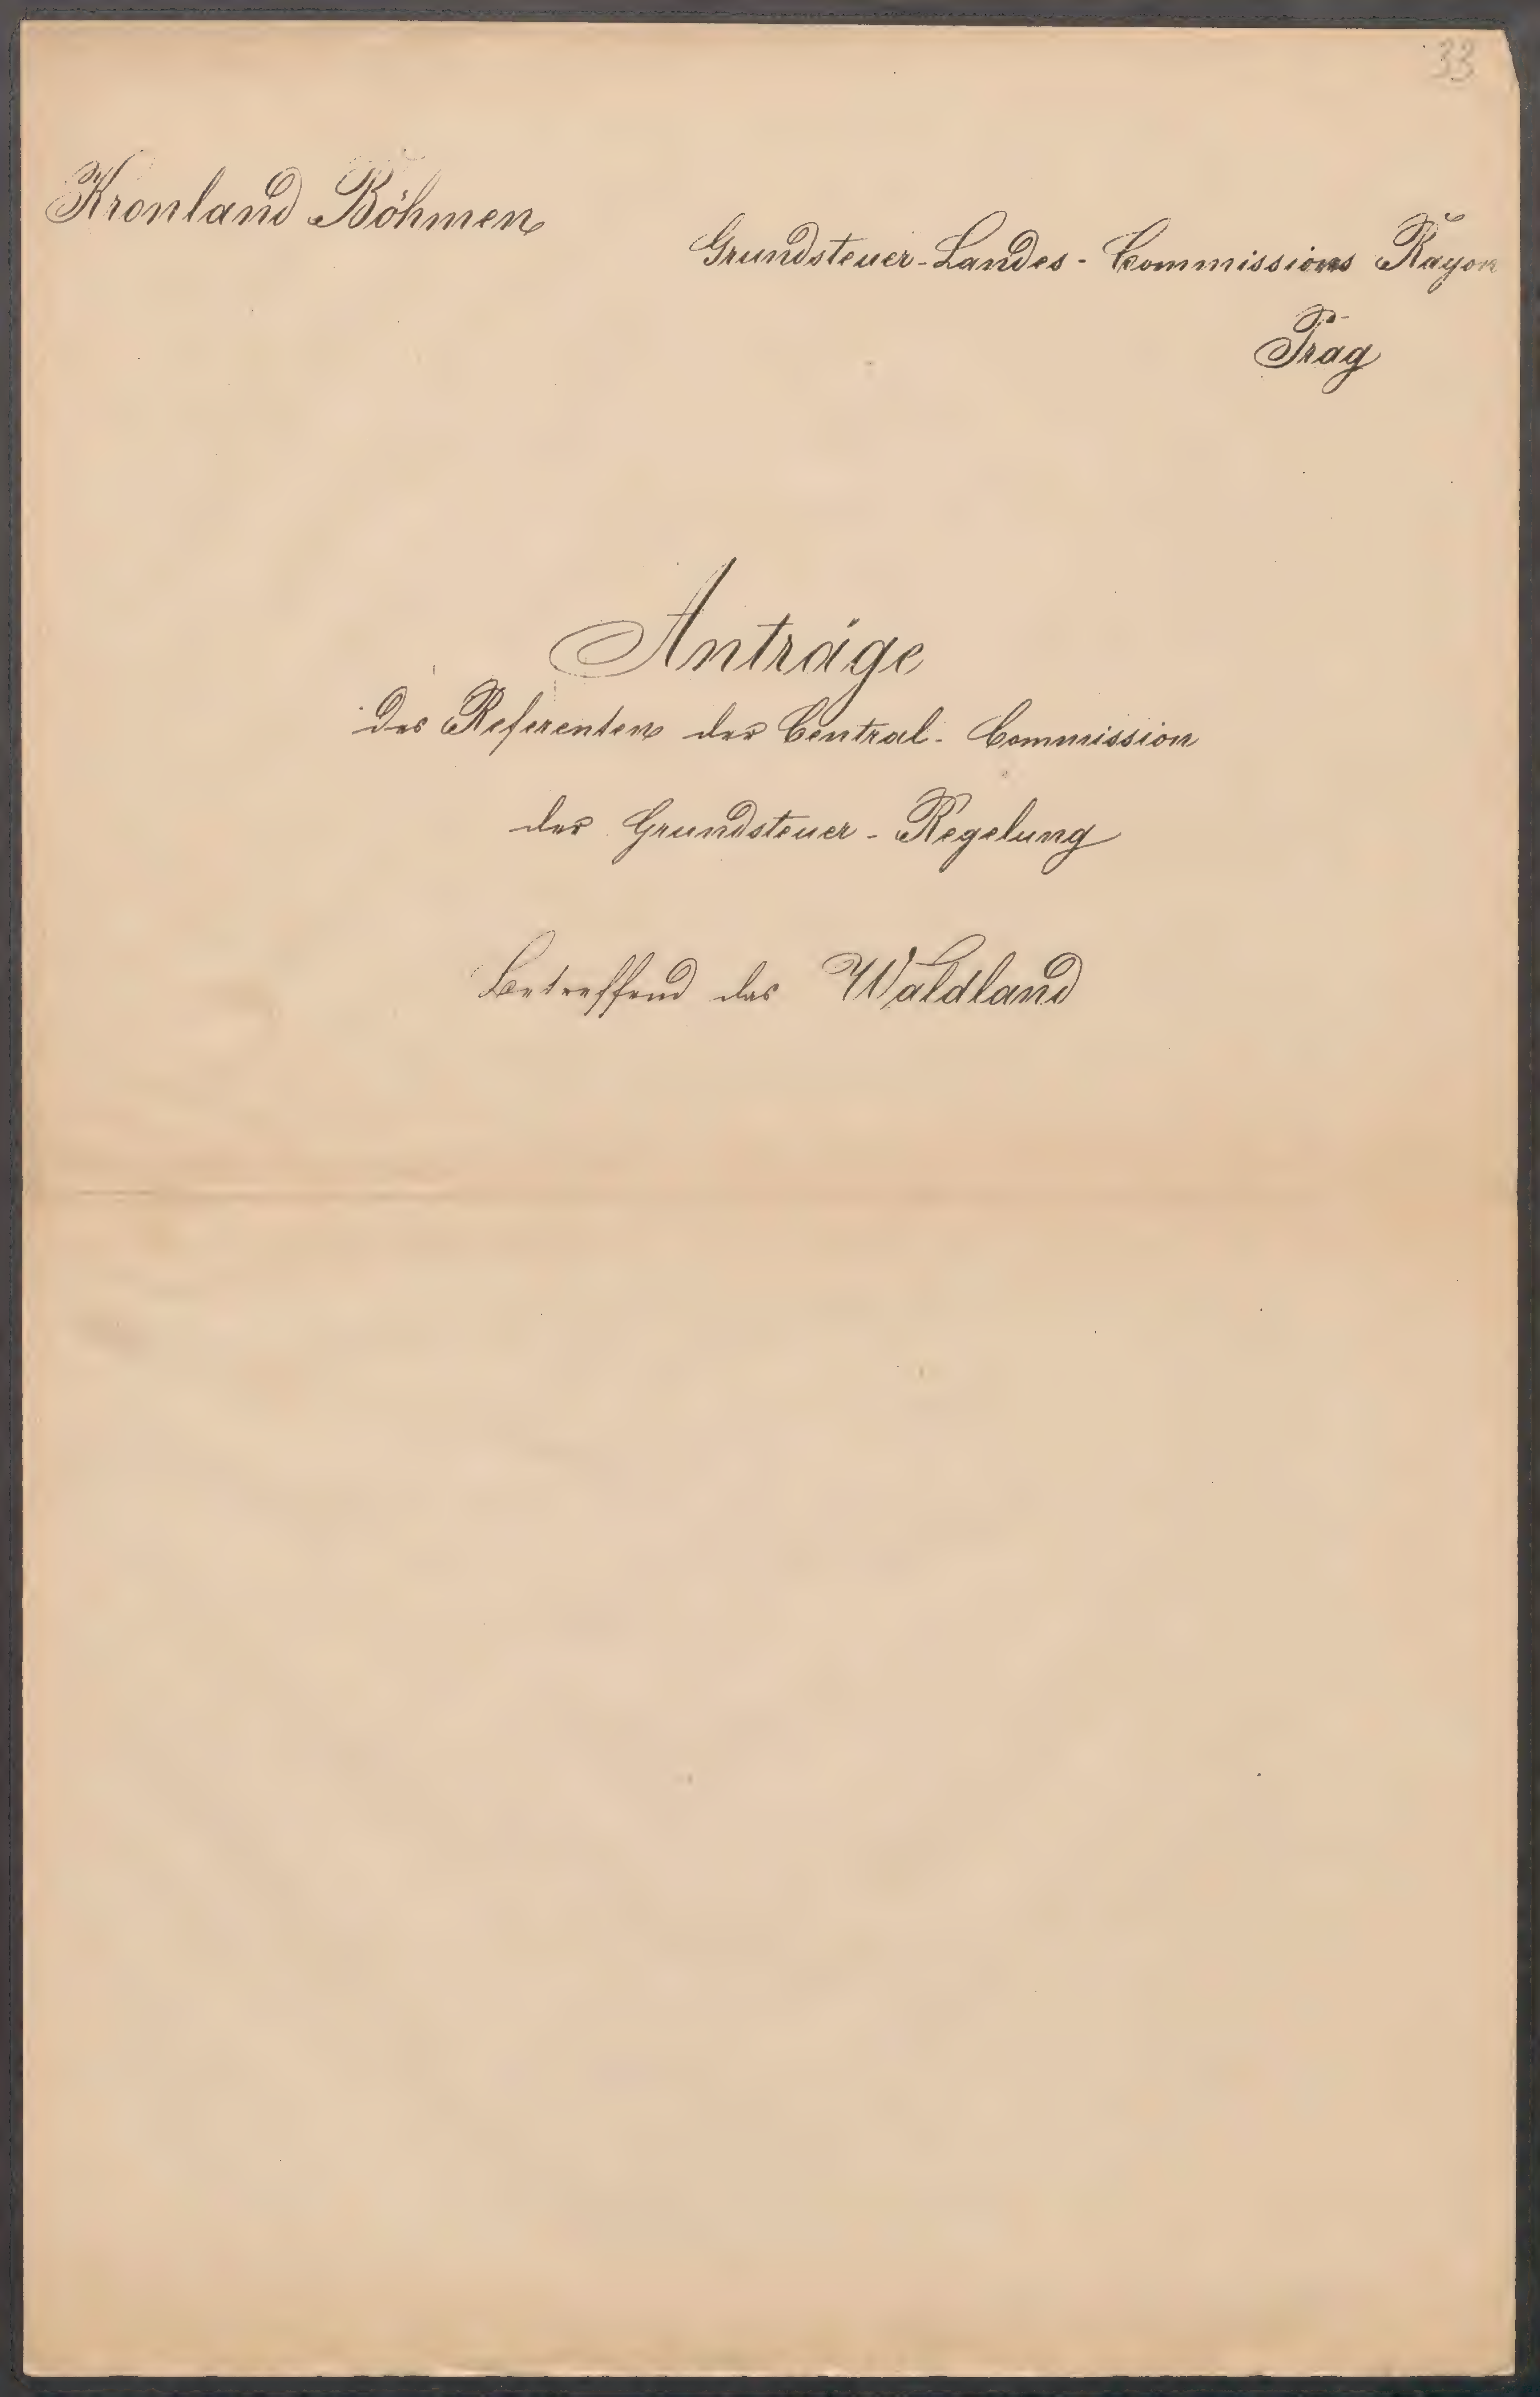 33
Kronland Böhmen
Grundsteuer-Landes-Commissions Rayon
Prag
Anträge
des Referenten der Central-Commission
der Grundsteuer-Regelung
betreffend das Waldland